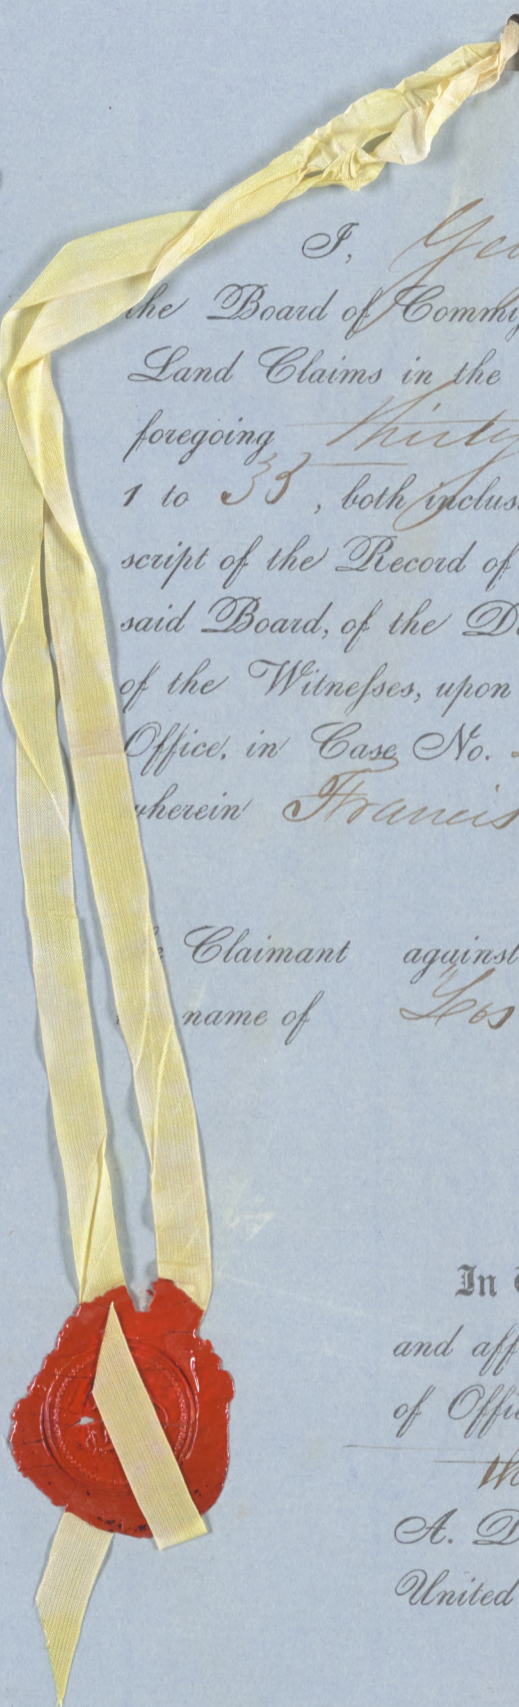 I, Geo
the Board of Commis
Land Claims in the
foregoing thirty
1 to 33, both inclus
script of the Record of
said Board, of the De
of the Witneſses, upon
Office, in Case No.
wherein Francis
Claimant against
name of "Los
In
and aff
of Offic
th
A. D
United